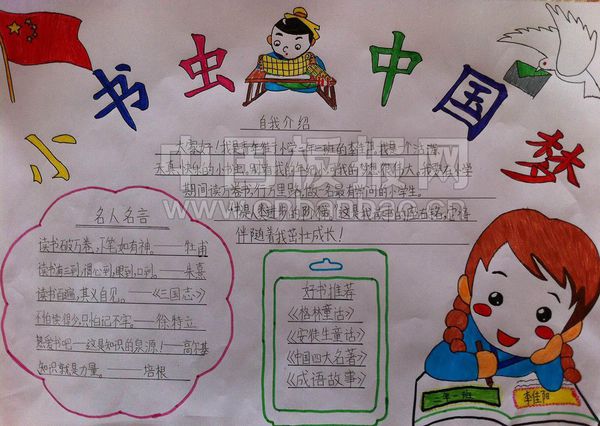 小书虫中国梦
自我介绍
大家好！我是
小学二年一班的李佳阳,我是个活泼
天真快乐的小书虫,别看我的年纪小可我的梦想很伟大,我要在小学
期间读万卷书,行万里路,做一名最有学问的小学生。
书是人类进步的阶梯,这是我读书的座右铭,它将
伴随着我茁壮成长！
名人名言
读书破万卷,下笔如有神。——杜甫
读书有三到,谓心到,眼到,口到。——朱熹
读书百遍,其义自见。——《三国志》
不怕读得少,只怕记不牢。——徐特立
热爱书吧——这是知识的泉源！——高尔基
知识就是力量。——培根
好书推荐
《格林童话》
《安徒生童话》
《中国四大名著》
《成语故事》
二年一班
李佳阳
中国板报网